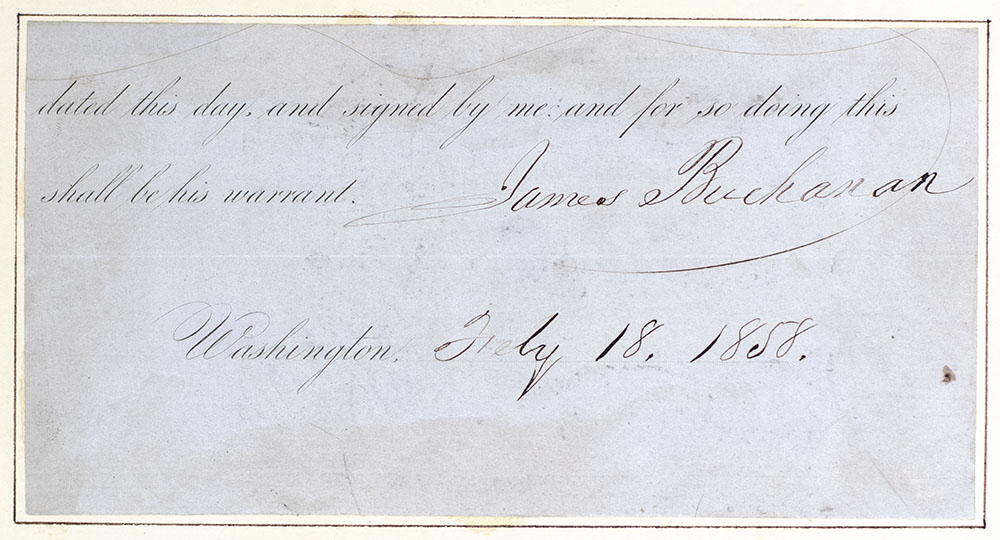 dated this day, and signed by me: and for so doing this
shall be his warrant. James Buchanan
Washington, July 18. 1858.